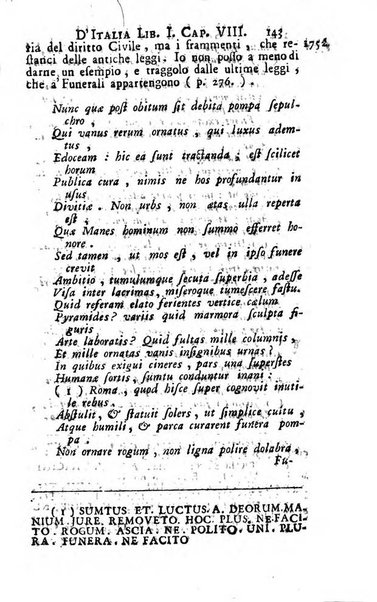 D'ITALIA LIB. I. CAP. VIII. 143
tia del diritto Civile, ma i frammenti, che re- 1752
stanci delle antiche leggi. Io non posso a meno di
darne un esempio, e traggolo dalle ultime leggi,
che a' Funerali appartengono ( p. 276. ) .
Nunc quæ post obitum sit debita pompa sepul-
chro,
Qui vanus rerum ornatus, qui luxus adem-
tus,
Edoceam : hic ea sunt tractanda, est scilicet
horum
Publica cura, nimis ne hos profundantur in
usus
Divitiæ. Non urbs, non ætas ulla reperta
est;
Quæ Manes hominum non summo efferret ho-
nore.
Sed tamen, ut mos est, vel in ipso funere
crevit
Ambitio, tumulumque secuta superbia, adesse
Visa inter lacrimas, miseroque tumescere fastu.
Quid referam elato ferientes vertice cælum
Pyramides? variis quid marmora sculpta fi-
guris
Arte laboratis? Quid fultas mille columnis,
Et mille ornatas vanis insignibus urnas?
In quibus exigui cineres, pars una superstes
Humanæ sortis, sumtu conduntur inani :
( 1 ) Roma, quod hic super cognovit inuti-
le rebus.
Abstulit, & statuit solers, ut simplice cultu,
Atque humili, & parca curarent funera pom-
pa.
Non ornare rogum, non ligna polire dolabra,
Fu-
( 1 ) SUMTUS ET. LUCTUS. A. DEORUM. MA-
NIUM. JURE. REMOVETO. HOC. PLUS. NE FACI-
TO. ROGUM. ASCIA. NE. POLITO. UNI. PLU-
RA. FUNERA. NE FACITO